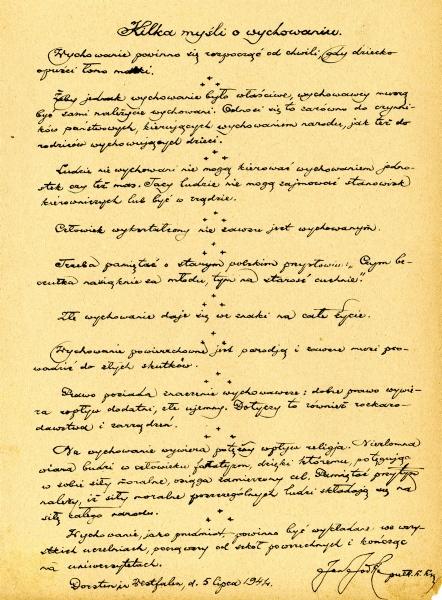 Kilka myśli o wychowaniu.
Wychowanie powinno się rozpocząć od chwili, gdy dziecko
opuści łono matki.
Żeby jednak wychowanie było właściwe, wychowawcy muszą
być sami należycie wychowani. Odnosi się to zarówno do czynni-
ków państwowych, kierujących wychowaniem narodu, jak też do
rodziców wychowujących dzieci.
Ludzie nie wychowani nie mogą kierować wychowaniem jedno-
stek czy też mas. Tacy ludzie nie mogą zajmować stanowisk
kierowniczych lub być w rządzie.
Człowiek wykształcony nie zawsze jest wychowanym.
Trzeba pamiętać o starym polskim przysłowiu: „Czym be-
czułka nasiąknie za młodu, tym na starość cuchnie".
Złe wychowanie daje się we znaki na całe życie.
Wychowanie powierzchowne jest parodją i zawsze musi pro-
wadzić do złych skutków.
Prawo posiada znaczenie wychowawcze: dobre prawo wywie-
ra wpływ dodatni, złe ujemny. Dotyczy to również rozkazo-
dawstwa i zarządzeń.
Na wychowanie wywiera potężny wpływ religja. Niezłomna
wiara budzi w człowieku fanatyzm, dzięki któremu, potęgując
w sobie siły moralne, osiąga zamierzony cel. Pamiętać przytym
należy, iż siły moralne poszczególnych ludzi składają się na
siłę całego narodu.
Wychowanie, jako przedmiot, powinno być wykładane we wszy-
stkich uczelniach, począwszy od szkół powszechnych i kończąc
na uniwersytetach.
Dorsten in Westfalen, d. 5 lipca 1944.